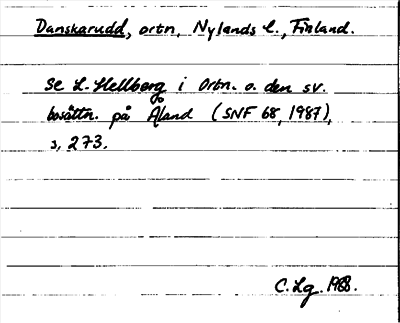 Danskarudd, ortn, Nylands l., Finland.
Se L. Hellberg i Ortn. o. den sv.
bosättn. på Åland (SNF 68, 1987),
s, 273.
C. Lg. 1988.